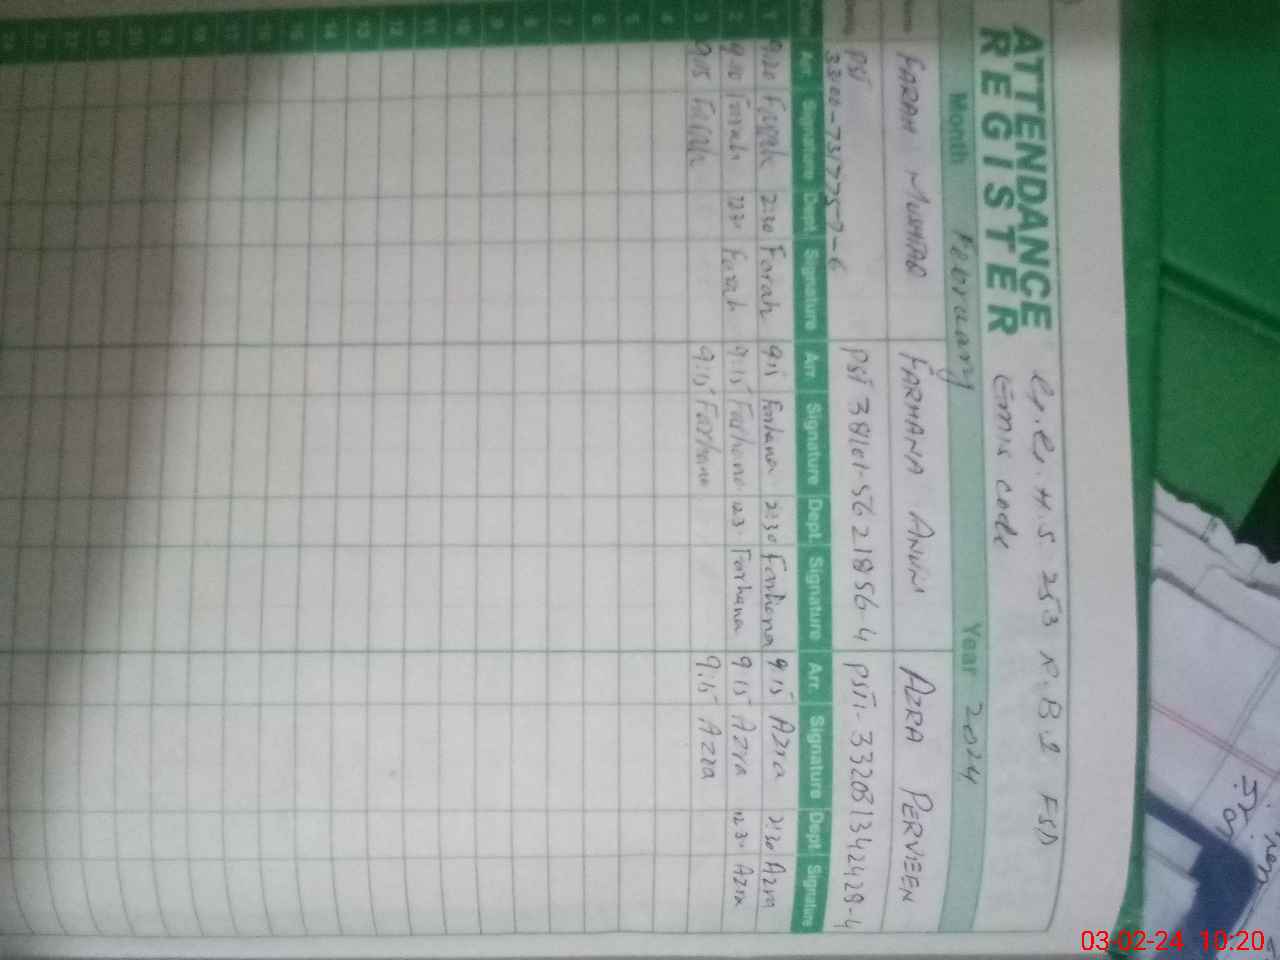 ATTENDANCE REGISTER
G.G.H.S 253 R.B 2 FSD
Emis code
Month February Year 2024
FARAH MUSHTAQ FARHANA ANWN AZRA PERVEEN
PST PST 38101-5621856-4 PST 332031342428-4
Date Arr. Signature Dept. Signature Arr. Signature Dept. Signature Arr. Signature Dept. Signature
1 9:20 Farah 2:30 Farah 9:15 Farhana 2:30 Farhana 9:15 Azra 2:30 Azra
2 9:10 Farah 12:30 Farah 9:15 Farhana 12:3 Farhana 9:15 Azra 12:30 Azra
3 9:15 Farah 9:15 Farhana 9:15 Azra
4
5
6
7
8
9
10
11
12
13
14
15
16
17
18
19
20
21
22
23
03-02-24 10:20